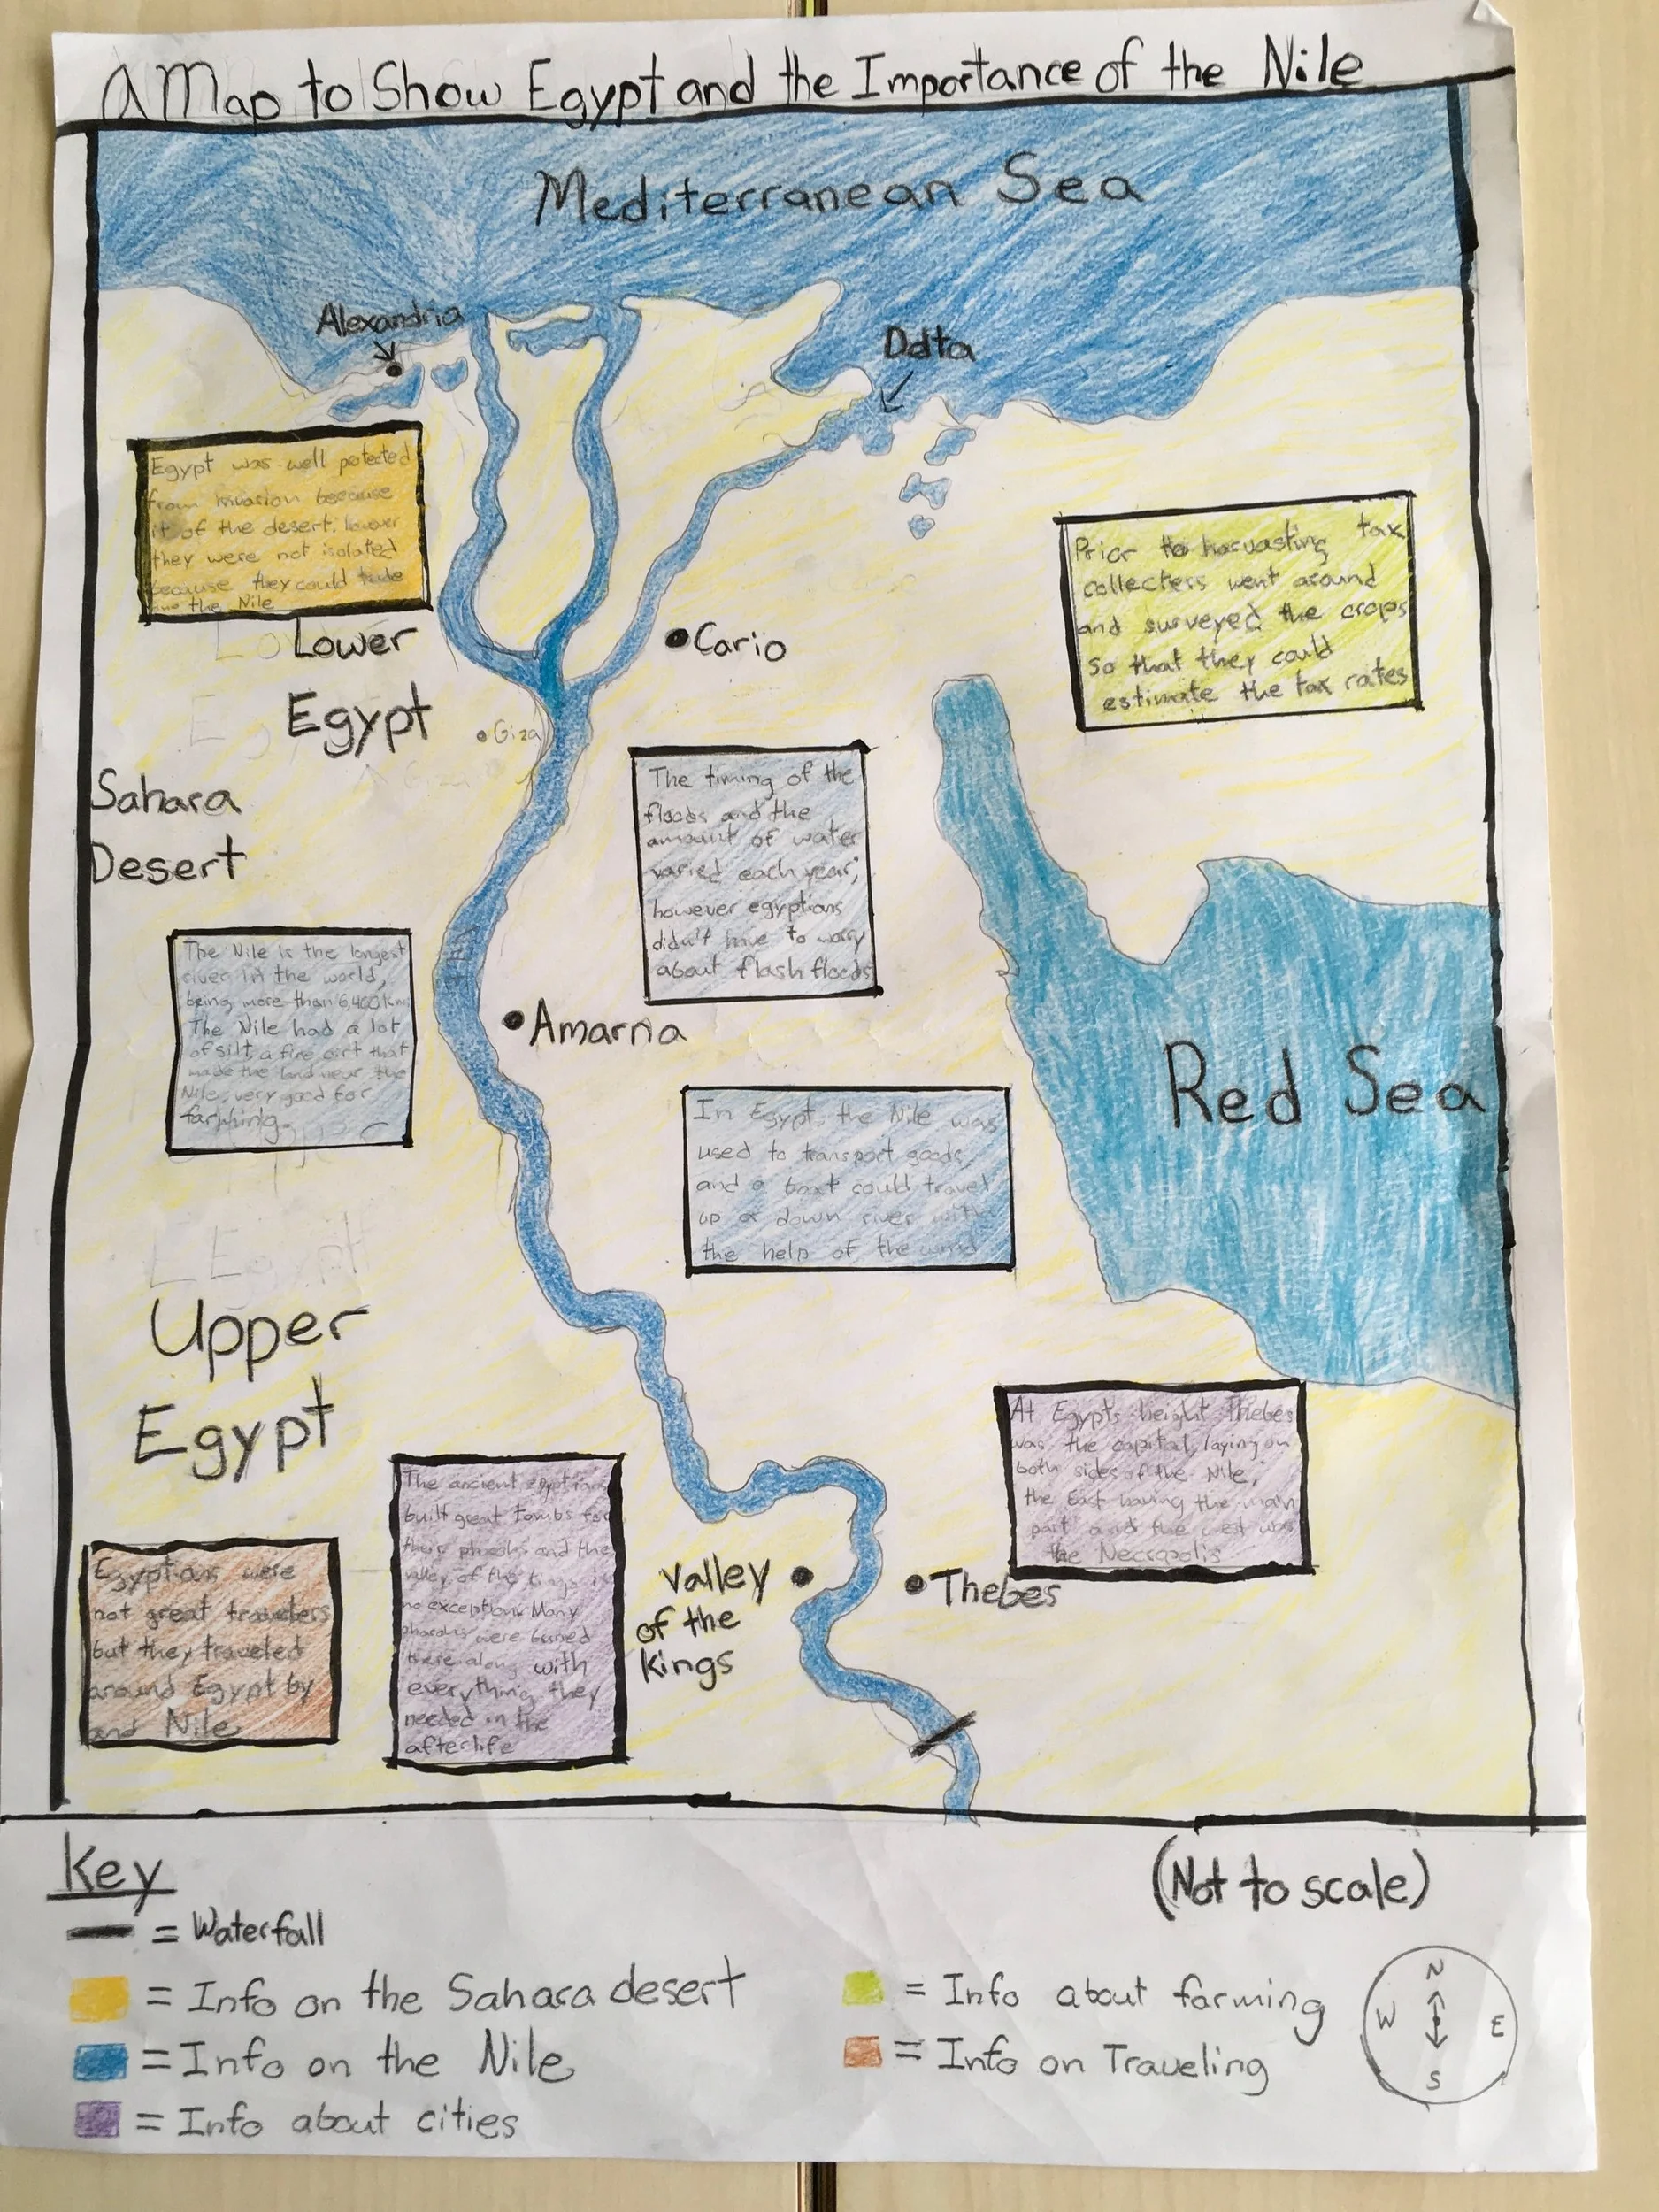 A Map to Show Egypt and the Importance of the Nile
Mediterranean Sea
Alexandria
Delta
Egypt was well potected
from invasion because
it of the desert.
they were not isolated
because they could trade
the Nile
Prior to harvasting tax
collecters went around
and surveyed the crops
so that they could
estimate the tax rates
Lower
Egypt
Cario
Giza
Sahara
Desert
The timing of the
floods and the
amount of water
varied each year;
however egyptians
didn't have to worry
about flash floods
The Nile is the longest
river in the world,
being more than 6,400 km.
The Nile had a lot
of silt, a fine dirt that
made the land near the
Nile, very good for
farming.
Amarna
Red Sea
In Egypt, the Nile was
used to transport goods,
and a boat could travel
up or down river with
the help of the wind
Upper
Egypt
At Egypts height Thebes
was the capital, laying on
both sides of the Nile;
the East having the main
part and the west was
the Necropolis
The ancient egyptians
built great tombs for
their and the
valley of the kings is
no exception. Many
were buried
there along with
everything they
needed in the
afterlife
Egyptians were
not great travelers
but they traveled
around Egypt by
and Nile
Valley
of the
Kings
Thebes
Key
= Waterfall
= Info on the Sahara desert
= Info on the Nile
= Info about cities
(Not to scale)
= Info about farming
= Info on Traveling
N
W E
S